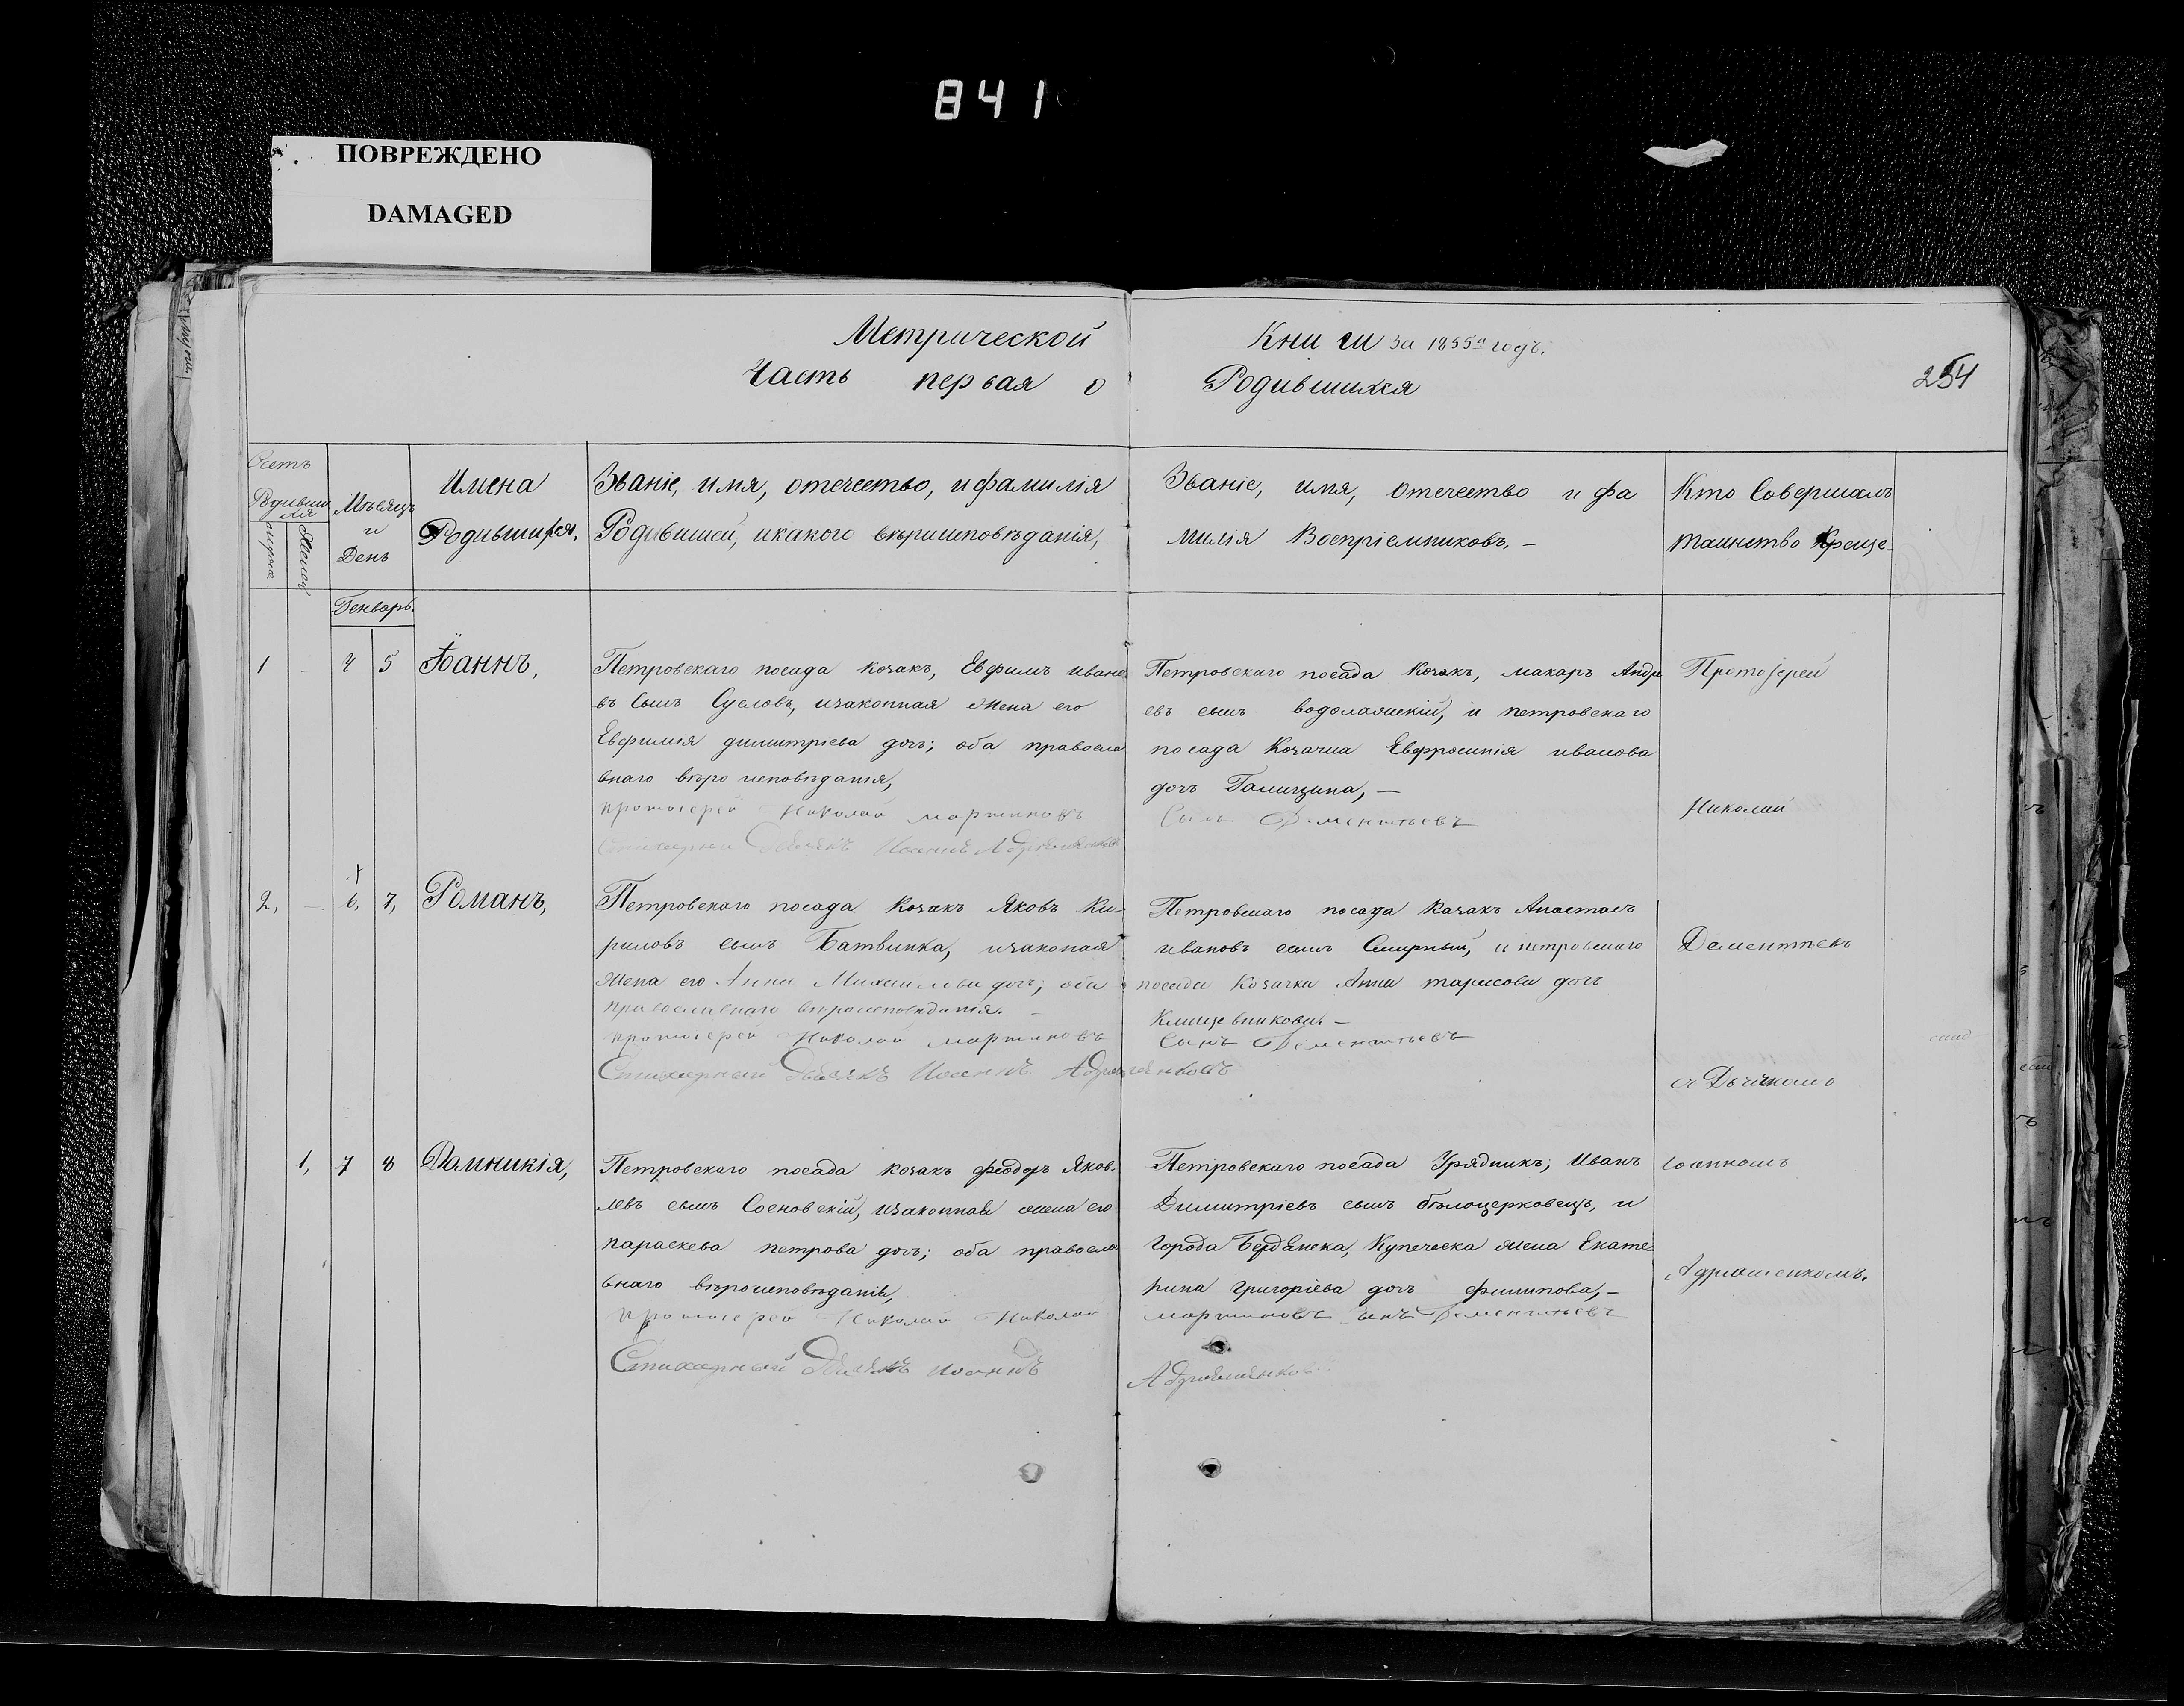 841
ПОВРЕЖДЕНО
DAMAGED
Метрической Книги за 1855й годъ.
Часть первая о Родившихся
254
Счетъ Родивших ся
Мѣсяцъ и День
Имена Родившихся,
Званіе, имя, отечество, и фамилія
Родившей, икакого вѣриисповѣданія,
Званіе, имя, Отечество и фа
милія Воспріемниковъ. –
Кто Совершалъ
таинство Креще-
Генварь.
1 – 4 5 Іоаннъ,
Петровскаго посада козакъ, Евфимъ ивано
въ Сынъ Сусловъ, изаконная Жена его
Евфимія димитріева дочь; оба правосла
внаго вѣро исповѣданія,
протоіерей Николай мартиновъ
Стихарный Дьячекъ Иоаннъ
Петровскаго посада Козакъ, макаръ Андре
евъ сынъ водолажскій, и петровскаго
посада Козачка Евфросинія иванова
дочь Галицина, –
Сынъ Дементьевъ
Протоіерей
Николай
2, – 6, 7, Романъ,
Петровскаго посада Козакъ Яковъ Ки-
риловъ сынъ Батвинка, изаконая
Жена его Анна Михаилова дочь; оба
православнаго вѣроисповѣданія. –
протоіерей Николай мартиновъ
Стихарный Дьячекъ Иоаннъ
Петровскаго посада Казакъ Анастасъ
ивановъ сынъ Смирный, и петровскаго
посада Козачка Анна тарасова дочь
–
Сынъ Дементьевъ
Дементьевъ
съ Дьячкомъ
1, 7 8 Домникія,
Петровскаго посада козакъ феодоръ Яков-
левъ сынъ Сосновскій, изаконная жена его
параскева петрова дочь; оба правосла
внаго вѣроисповѣданія,
протоіерей Николай Николай
Стихарный Дьячекъ иоаннъ
Петровскаго посада Урядникъ, Иванъ
Димитріевъ сынъ бѣлоцерковецъ, и
города Бердянска, Купческа жена Екате-
рина григоріева дочь филипова, –
мартиновъ сынъ Дементьевъ
Іоанномъ
Адріашенкомъ.